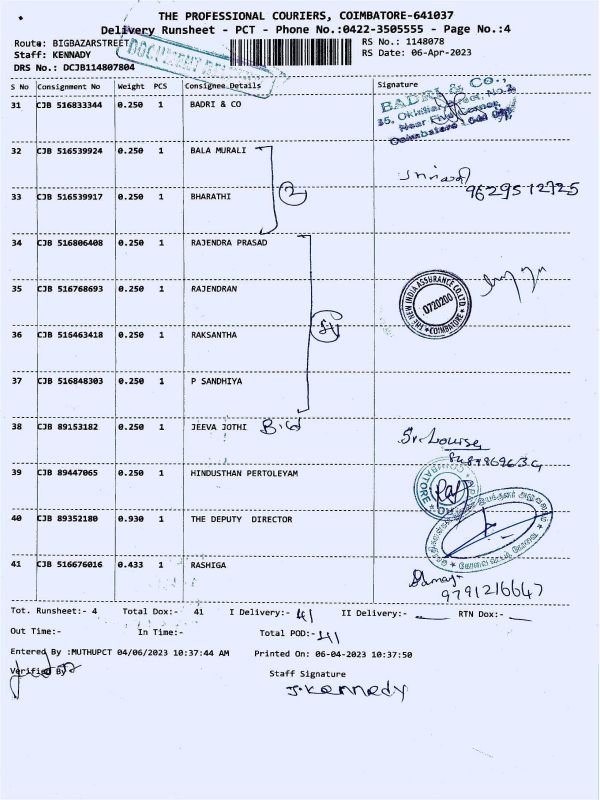 THE PROFESSIONAL COURIERS, COIMBATORE-641037
Delivery Runsheet - PCT - Phone No.:0422-3505555 - Page No.:4
Route: BIGBAZARSTREET RS No.: 1148078
Staff: KENNADY RS Date: 06-Apr-2023
DRS No.: DCJB114807804
DOCUMENT
S No Consignment No Weight PCS Consignee Details Signature
31 CJB 516833344 0.250 1 BADRI & CO
BADRI & CO.,
Near Five Corner,
Coimbatore
32 CJB 516539924 0.250 1 BALA MURALI
9629512725
33 CJB 516539917 0.250 1 BHARATHI
2
34 CJB 516806408 0.250 1 RAJENDRA PRASAD
35 CJB 516768693 0.250 1 RAJENDRAN
THE NEW INDIA ASSURANCE CO.LTD.
0720200
COIMBATORE
36 CJB 516463418 0.250 1 RAKSANTHA
4
37 CJB 516848303 0.250 1 P SANDHIYA
38 CJB 89153182 0.250 1 JEEVA JOTHI
39 CJB 89447065 0.250 1 HINDUSTHAN PERTOLEYAM
40 CJB 89352180 0.930 1 THE DEPUTY DIRECTOR
41 CJB 516676016 0.433 1 RASHIGA
9791216647
Tot. Runsheet:- 4 Total Dox:- 41 I Delivery:- 41 II Delivery:- RTN Dox:-
Out Time:- In Time:- Total POD:- 41
Entered By :MUTHUPCT 04/06/2023 10:37:44 AM Printed On: 06-04-2023 10:37:50
Verified By Staff Signature
J.Kennedy